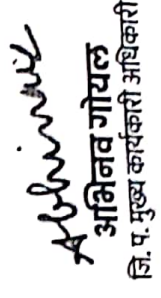 अभिनव गोयल
जि. प. मुख्य कार्यकारी अधिकारी